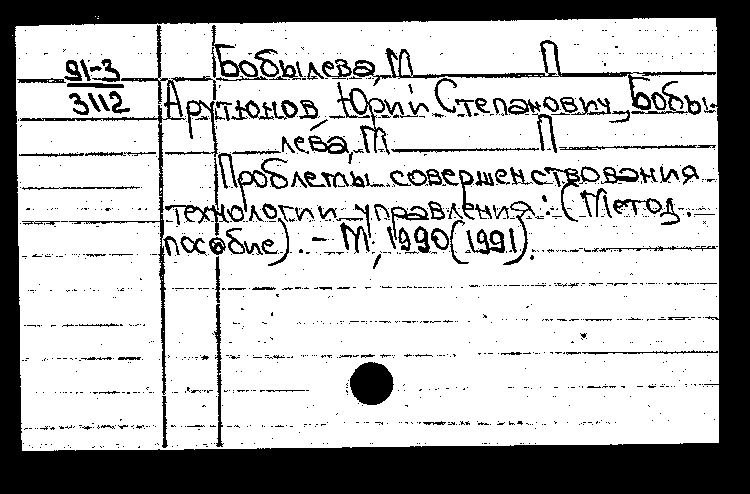 Бобылева, М П
91-3
3112
Арутюнов, Юрий Степанович, Бобы-
лева, М П
Проблемы совершенствования
технологии управления : (Метод.
пособие). - М, 1990(1991).